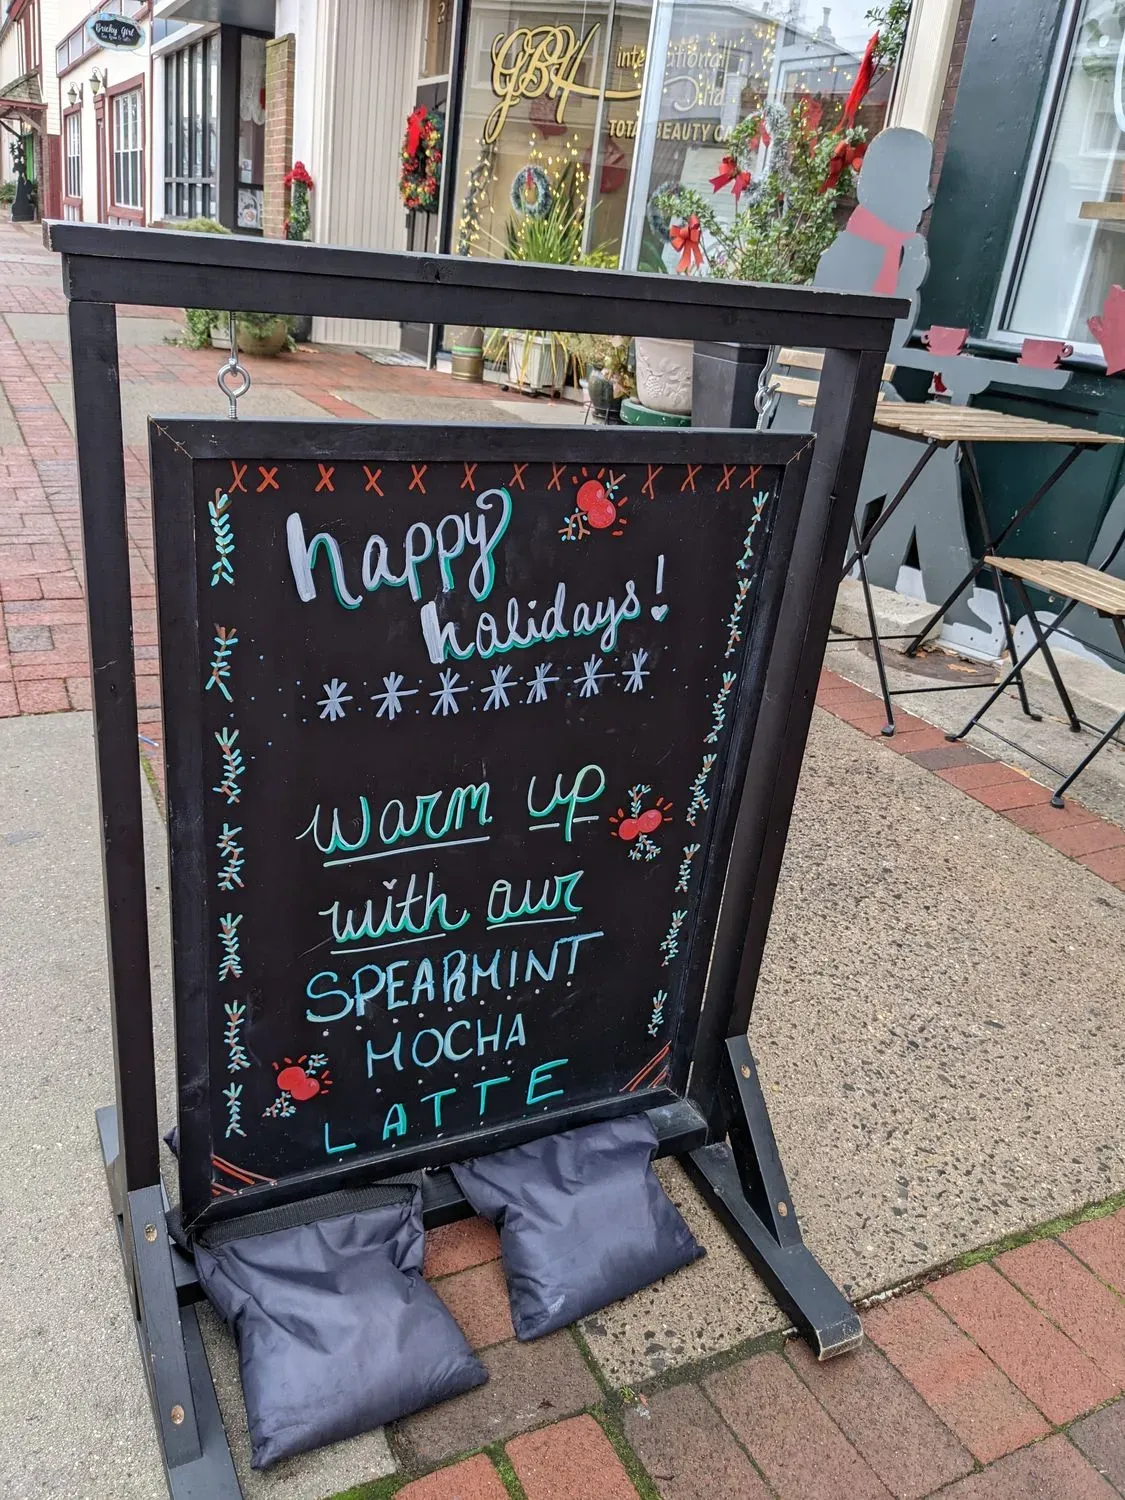 Gucky Girl
GBH
international
TOTAL BEAUTY CA
happy
holidays!
warm up
with our
SPEARMINT
MOCHA
LATTE